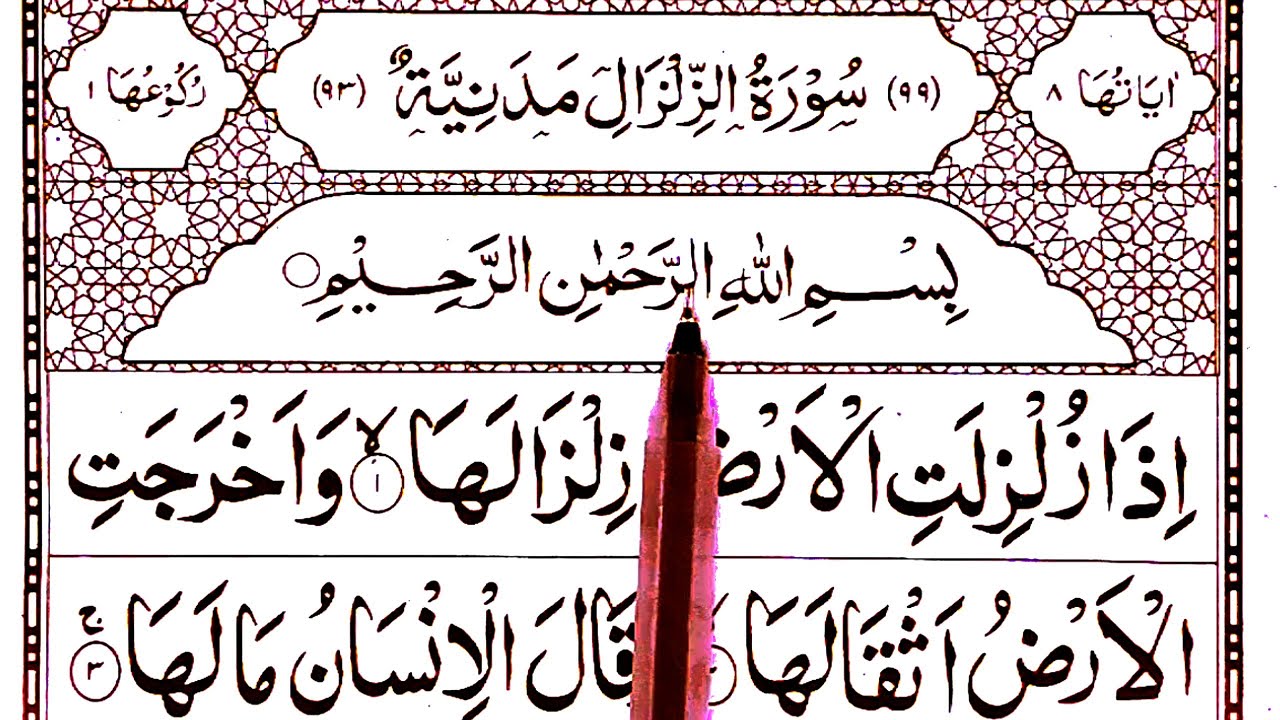 اٰيَاتُهَا ٨ (٩٩) سُوْرَةُ الزِّلْزَالِ مَدَنِيَّةٌ (٩٣) رُكُوْعُهَا ١
بِسْمِ اللّٰهِ الرَّحْمٰنِ الرَّحِيْمِ
اِذَا زُلْزِلَتِ الْاَرْضُ زِلْزَالَهَا ۙ ١ وَاَخْرَجَتِ
الْاَرْضُ اَثْقَالَهَا قَالَ الْاِنْسَانُ مَا لَهَا ۚ ٣